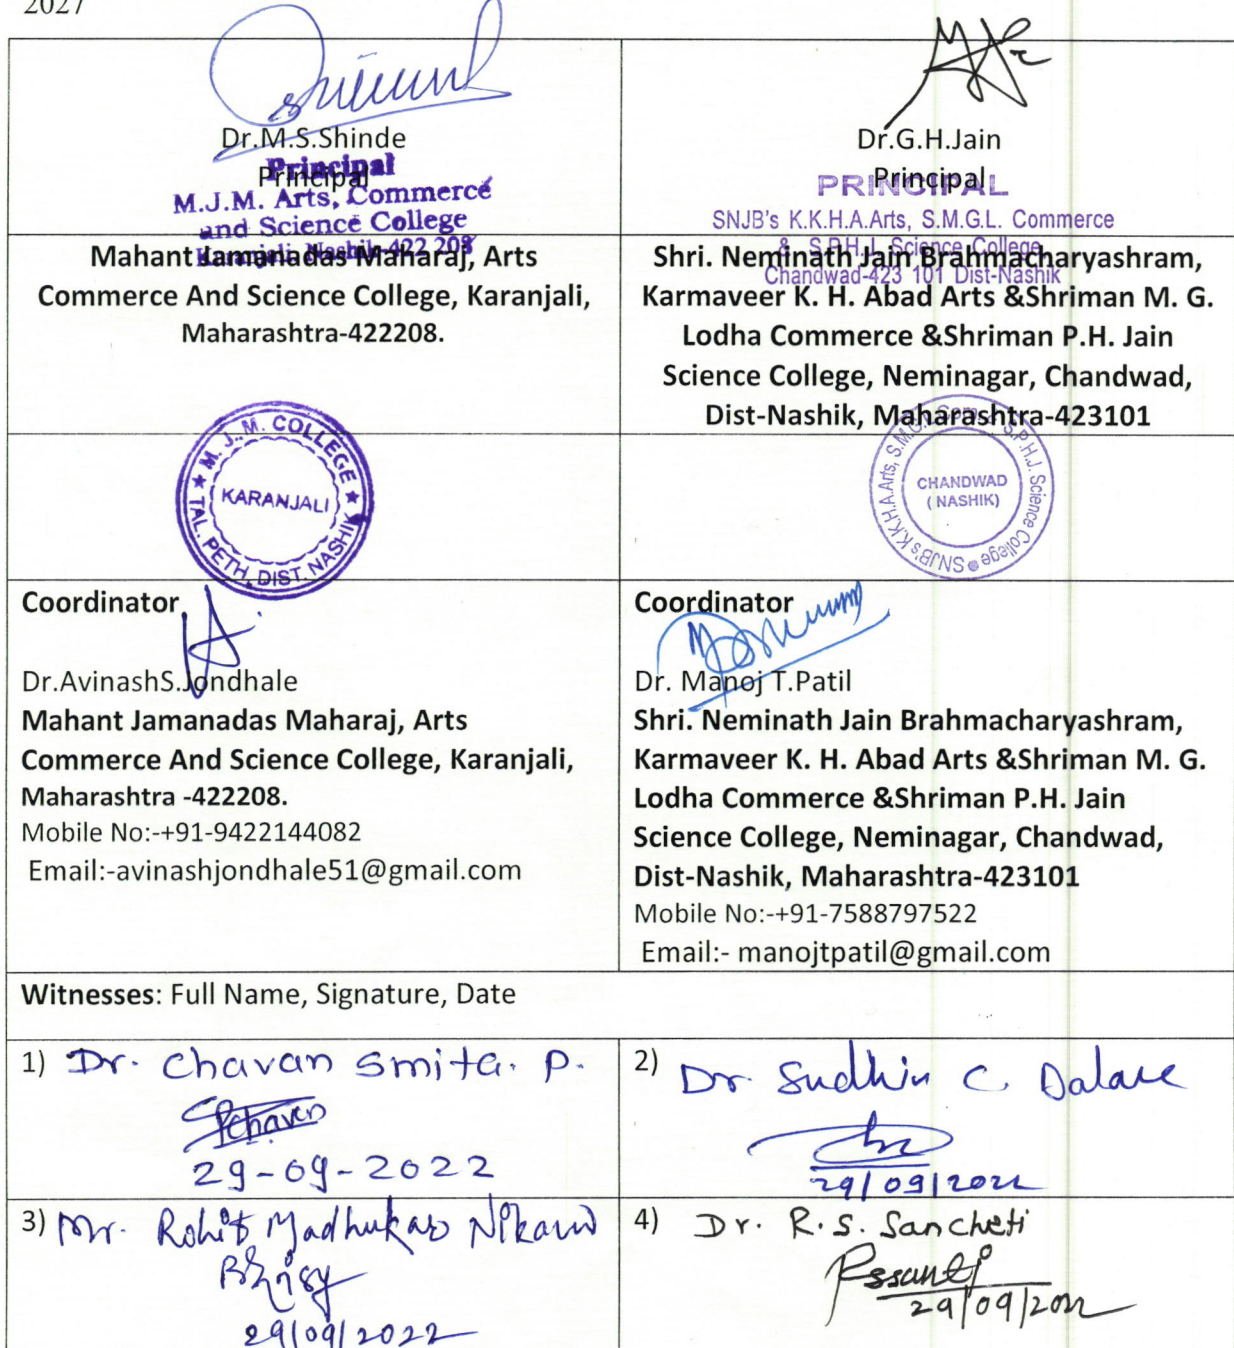 2027
Dr.M.S.Shinde
Principal
Principal
M.J.M. Arts, Commerce
and Science College
Karanjali, Nashik-422 208
Mahant Jamanadas Maharaj, Arts
Commerce And Science College, Karanjali,
Maharashtra-422208.
Dr.G.H.Jain
Principal
PRINCIPAL
SNJB's K.K.H.A.Arts, S.M.G.L. Commerce
& S.P.H.J. Science College
Chandwad-423 101 Dist-Nashik
Shri. Neminath Jain Brahmacharyashram,
Karmaveer K. H. Abad Arts &Shriman M. G.
Lodha Commerce &Shriman P.H. Jain
Science College, Neminagar, Chandwad,
Dist-Nashik, Maharashtra-423101
M. J. M. COLLEGE
KARANJALI
TAL. PETH, DIST. NASHIK
SNJB's K.K.H.A.Arts, S.M.G.L. Com. & S.P.H.J. Science College
CHANDWAD
( NASHIK)
Coordinator
Dr.AvinashS.Jondhale
Mahant Jamanadas Maharaj, Arts
Commerce And Science College, Karanjali,
Maharashtra -422208.
Mobile No:-+91-9422144082
Email:-avinashjondhale51@gmail.com
Coordinator
Dr. Manoj T.Patil
Shri. Neminath Jain Brahmacharyashram,
Karmaveer K. H. Abad Arts &Shriman M. G.
Lodha Commerce &Shriman P.H. Jain
Science College, Neminagar, Chandwad,
Dist-Nashik, Maharashtra-423101
Mobile No:-+91-7588797522
Email:- manojtpatil@gmail.com
Witnesses: Full Name, Signature, Date
1) Dr. Chavan Smita. P.
SPChavan
29-09-2022
2) Dr. Sudhir C. Dalave
29/09/2022
3) Mr. Rohit Madhukar Nikam
29/09/2022
4) Dr. R.S. Sancheti
29/09/2022